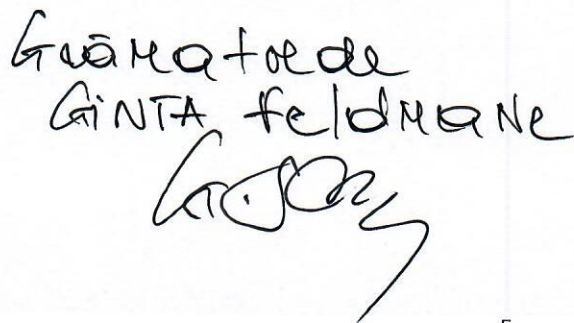 Grāmatvede
GINTA Feldmane